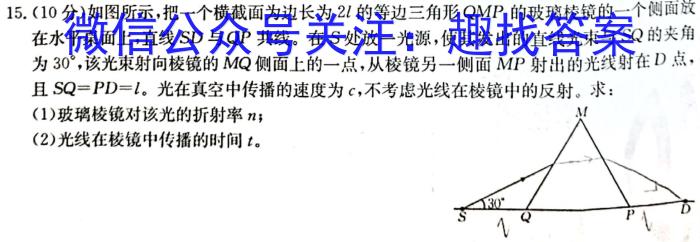 15.(10分)如图所示,把一个横截面为边长为2l的等边三角形QMP的玻璃棱镜的一个侧面放
在水平桌面上,直线SD与QP共线。在S处放一光源,使 的直线光束 SQ的夹角
微信公众号关注:趣找答案
为30°,该光束射向棱镜的MQ侧面上的一点,从棱镜另一侧面MP射出的光线射在D点,
且SQ=PD=l。光在真空中传播的速度为c,不考虑光线在棱镜中的反射。求:
(1)玻璃棱镜对该光的折射率n;
(2)光线在棱镜中传播的时间t。
M
30°
S
Q
P
D